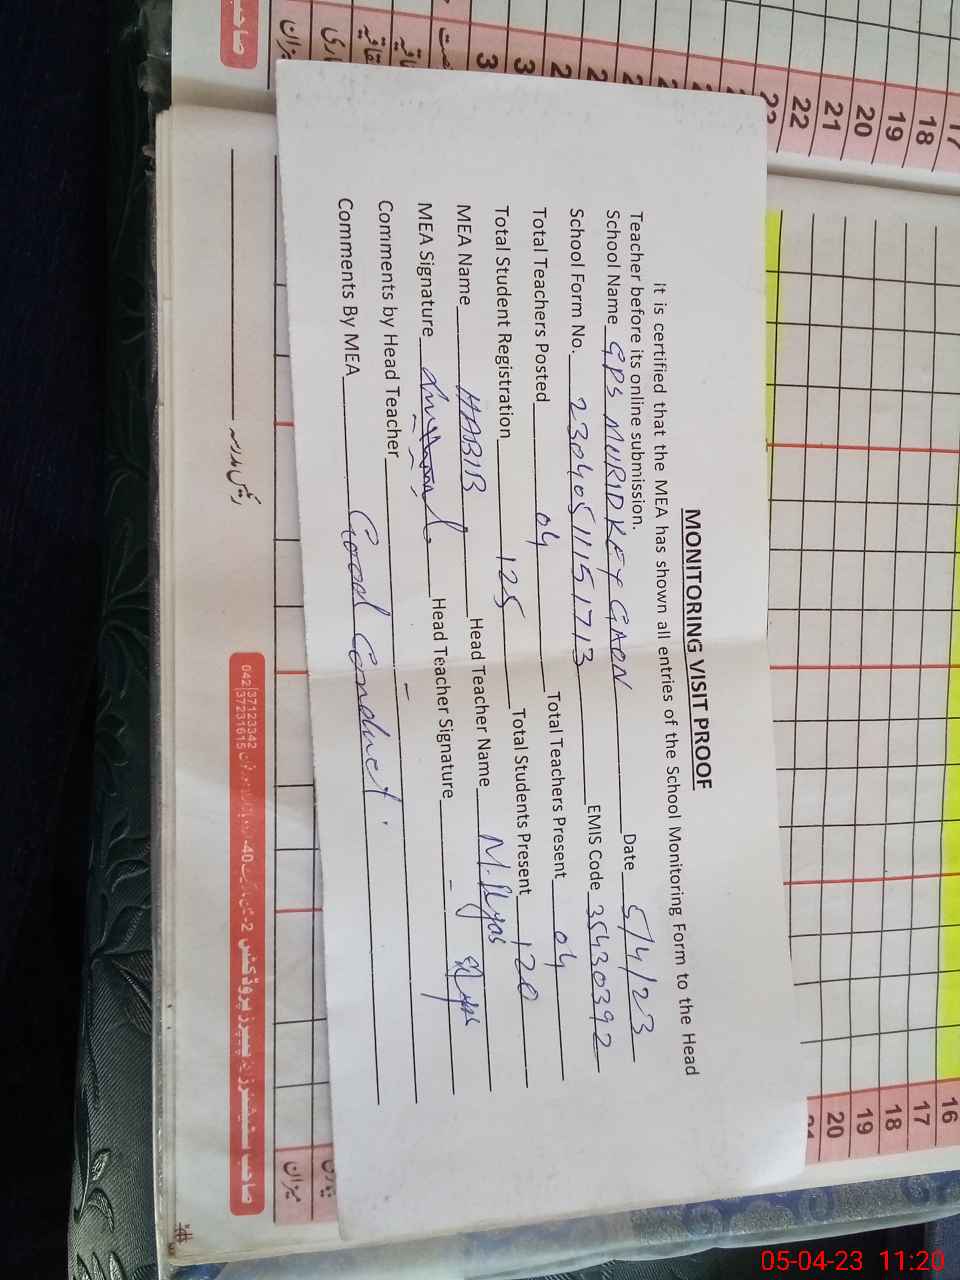 MONITORING VISIT PROOF
It is certified that the MEA has shown all entries of the School Monitoring Form to the Head
Teacher before its online submission.
School Name GPS MURIDKEY GAON Date 5/4/23
School Form No. 23040511151713 EMIS Code 35430392
Total Teachers Posted 04 Total Teachers Present 04
Total Student Registration 125 Total Students Present 120
MEA Name HABIB Head Teacher Name M. Ilyas
MEA Signature Head Teacher Signature - Ilyas
Comments by Head Teacher -
Comments By MEA Good Conduct.
17
18
19
20
21
22
23
16
17
18
19
20
21
میزان
میزان
رئیس مدرسہ
صاحب سٹیشنرز اینڈ پیپرز پروڈکٹس
042 37123342
37231615
05-04-23 11:20